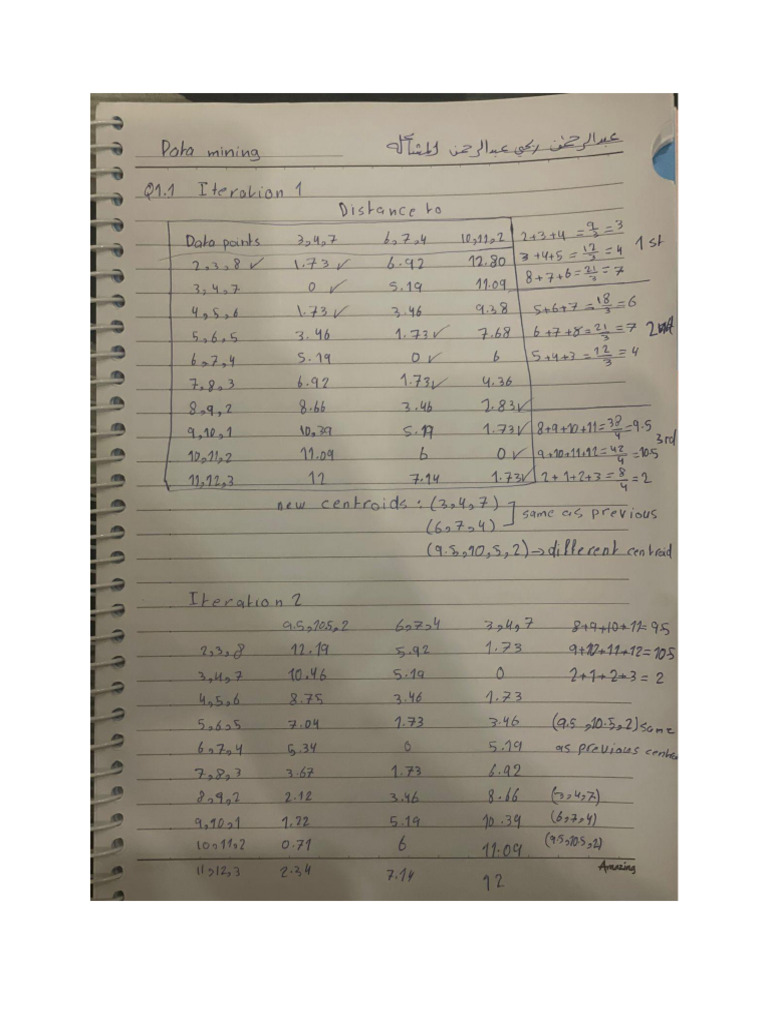 Data mining
عبدالرحمن ربحي عبدالرحمن
Q1.1 Iteration 1
Distance to
Data points 3,4,7 6,7,4 10,11,2
2,3,8 ✓ 1.73 ✓ 6.92 12.80
3,4,7 0 ✓ 5.19 11.09
4,5,6 1.73 ✓ 3.46 9.38
5,6,5 3.46 1.73 ✓ 7.68
6,7,4 5.19 0 ✓ 6
7,8,3 6.92 1.73 ✓ 4.36
8,9,2 8.66 3.46 2.83 ✓
9,10,1 10,39 5.19 1.73 ✓
10,11,2 11.09 6 0 ✓
11,12,3 12 7.14 1.73 ✓
2+3+4 = 9/3 = 3
3+4+5 = 12/3 = 4
1st
8+7+6 = 21/3 = 7
5+6+7 = 18/3 = 6
6+7+8 = 21/3 = 7
2nd
5+4+3 = 12/3 = 4
8+9+10+11 = 38/4 = 9.5
3rd
9+10+11+12 = 42/4 = 10.5
2+1+2+3 = 8/4 = 2
new centroids : (3,4,7)
(6,7,4)
same as previous
(9.5,10,5,2) → different centroid
Iteration 2
9.5,10.5,2 6,7,4 3,4,7
2,3,8 12.19 5.92 1.73
3,4,7 10.46 5.19 0
4,5,6 8.75 3.46 1.73
5,6,5 7.04 1.73 3.46
6,7,4 5.34 0 5.19
7,8,3 3.67 1.73 6.92
8,9,2 2.12 3.46 8.66
9,10,1 1.22 5.19 10.39
10,11,2 0.71 6 11.09
11,12,3 2.34 7.14 12
8+9+10+11=9.5
9+10+11+12=10.5
2+1+2+3=2
(9.5,10.5,2) same
as previous centro
(3,4,7)
(6,7,4)
(9.5,10.5,2)
Amazing